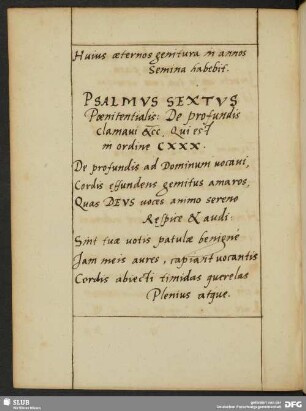 Huius æternos genitura in annos
Semina habebit.
PSALMVS SEXTVS
Pœnitentialis: De profundis
clamaui &cc. Qui est
in ordine CXXX.
De profundis ad Dominum vocaui,
Cordis effundens gemitus amaros,
Quas DEVS voces animo sereno
Respice & audi.
Sint tuæ votis patulæ benignè
Jam meis aures, capiant vocantis
Cordis abiecti timidas querelas
Plenius atque.
SLUB
Wir führen Wissen.
DFG